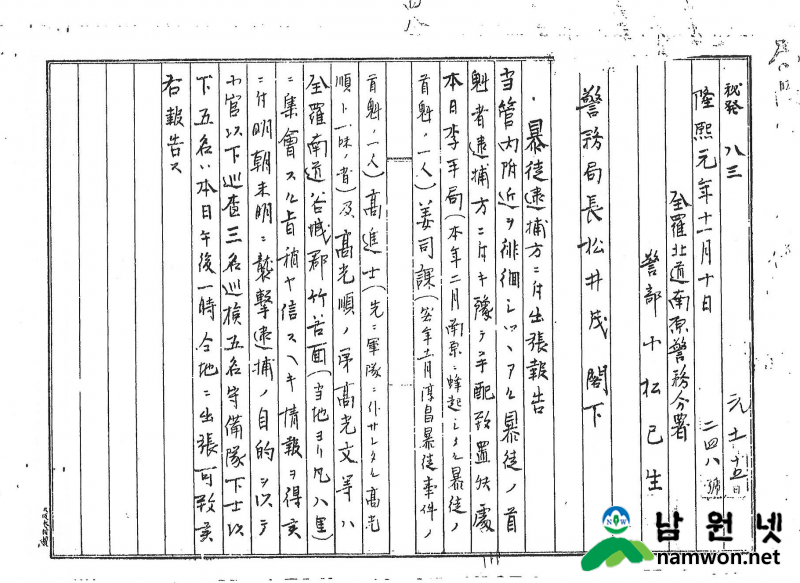 秘発 八三
隆熙元年十一月十日
全羅北道南原警務分署
警部 小松己生
元 十一 十五日
二四八號
警務局長松井茂閣下
暴徒逮捕方ニ付出張報告
当管内附近ヲ徘徊シツヽアル暴徒ノ首
魁者逮捕方ニ付キ豫テ手配致置候處
本日李平局(本年二月南原ニ蜂起シタル暴徒ノ
首魁ノ一人)姜司課(年五月淳昌暴徒事件ノ
首魁ノ一人)高進士(先ニ軍隊ニタル高光
順ト一味ノ者)及高光順ノ弟高光文等ハ
全羅南道谷城郡竹谷面(当地ヨリ凡八里)
ニ集會スル旨稍ヤ信スヘキ情報ヲ得候
ニ付明朝未明ニ襲撃逮捕ノ目的ヲ以テ
小官以下巡査三名巡検五名守備隊下士以
下五名ハ本日午後一時仝地ニ出張可致候
右報告ス
남원넷
namwon.net